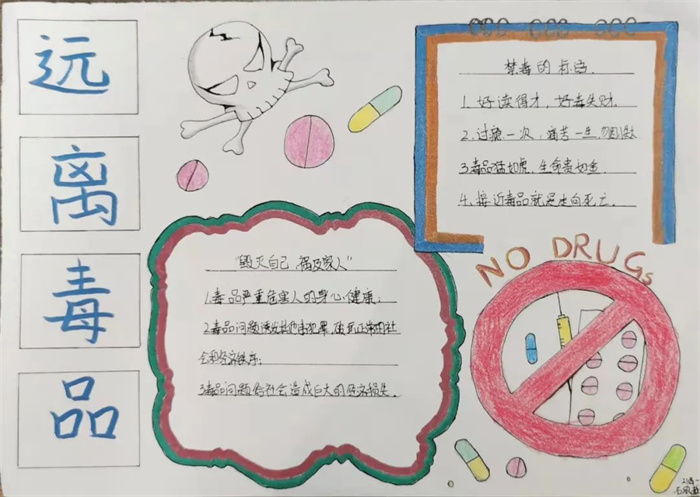 远
离
毒
品
禁毒的标语
1. 好读得才，好毒失财.
2. 过瘾一次，痛苦一生
3 毒品猛如虎，生命贵如金.
4. 接近毒品就是走向死亡.
NO DRUGS
"毁灭自己，祸及家人"
1. 毒品严重危害人的身心健康；
2 毒品问题诱发其他违法犯罪，破坏正常的社
会和经济秩序；
3 毒品问题给社会造成巨大的经济损失.